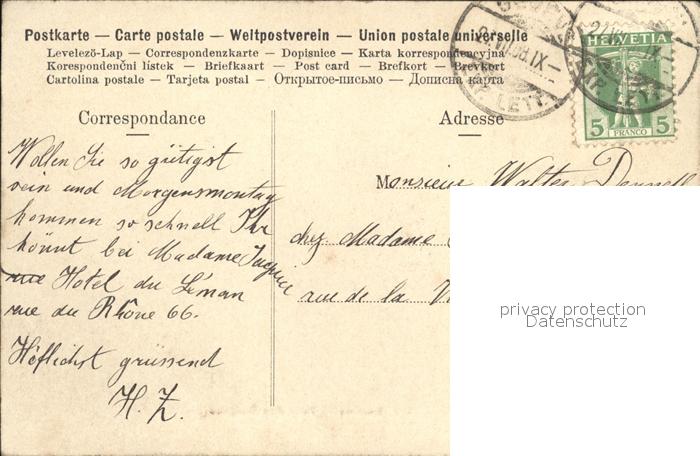 Postkarte — Carte postale — Weltpostverein — Union postale universelle
Levelező-Lap — Correspondenzkarte — Dopisnice — Karta korrespondencyjna
Korespondenční lístek — Briefkaart — Post card — Brefkort — Brevkort
Cartolina postale — Tarjeta postal — Открытое-письмо — Дописна карта
HELVETIA
5 5
FRANCO
EXP. LETT.
EXP. LETT.
Correspondance
Adresse
Wollen Sie so gütigst
sein und Morgensmontag
kommen so schnell Ihr
könnt bei Madame
Hotel du Léman
rue du Rhône 66.
Höflichst grüssend
H. Z.
Monsieur Walter
chez Madame
rue de la
privacy protection
Datenschutz